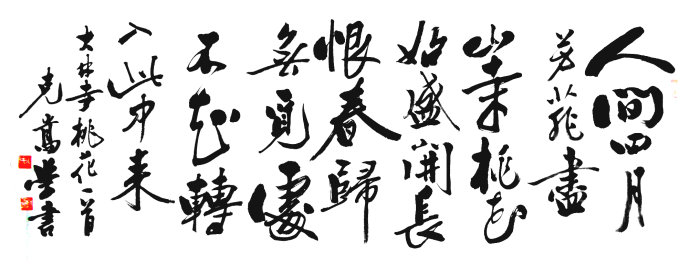 人間四月
芳菲盡
山寺桃花
始盛開長
恨春歸
無覓處
不知轉
入此中来
大林寺桃花一首
克嵩 書